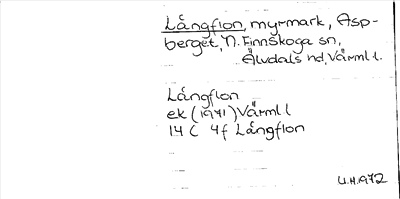 Långflon, myrmark, Asp-
berget, N. Finnskoga sn,
Älvdals hd, Värml l.
Långflon
ek (1971) Värml l
14 C 4f Långflon
U.H.A72